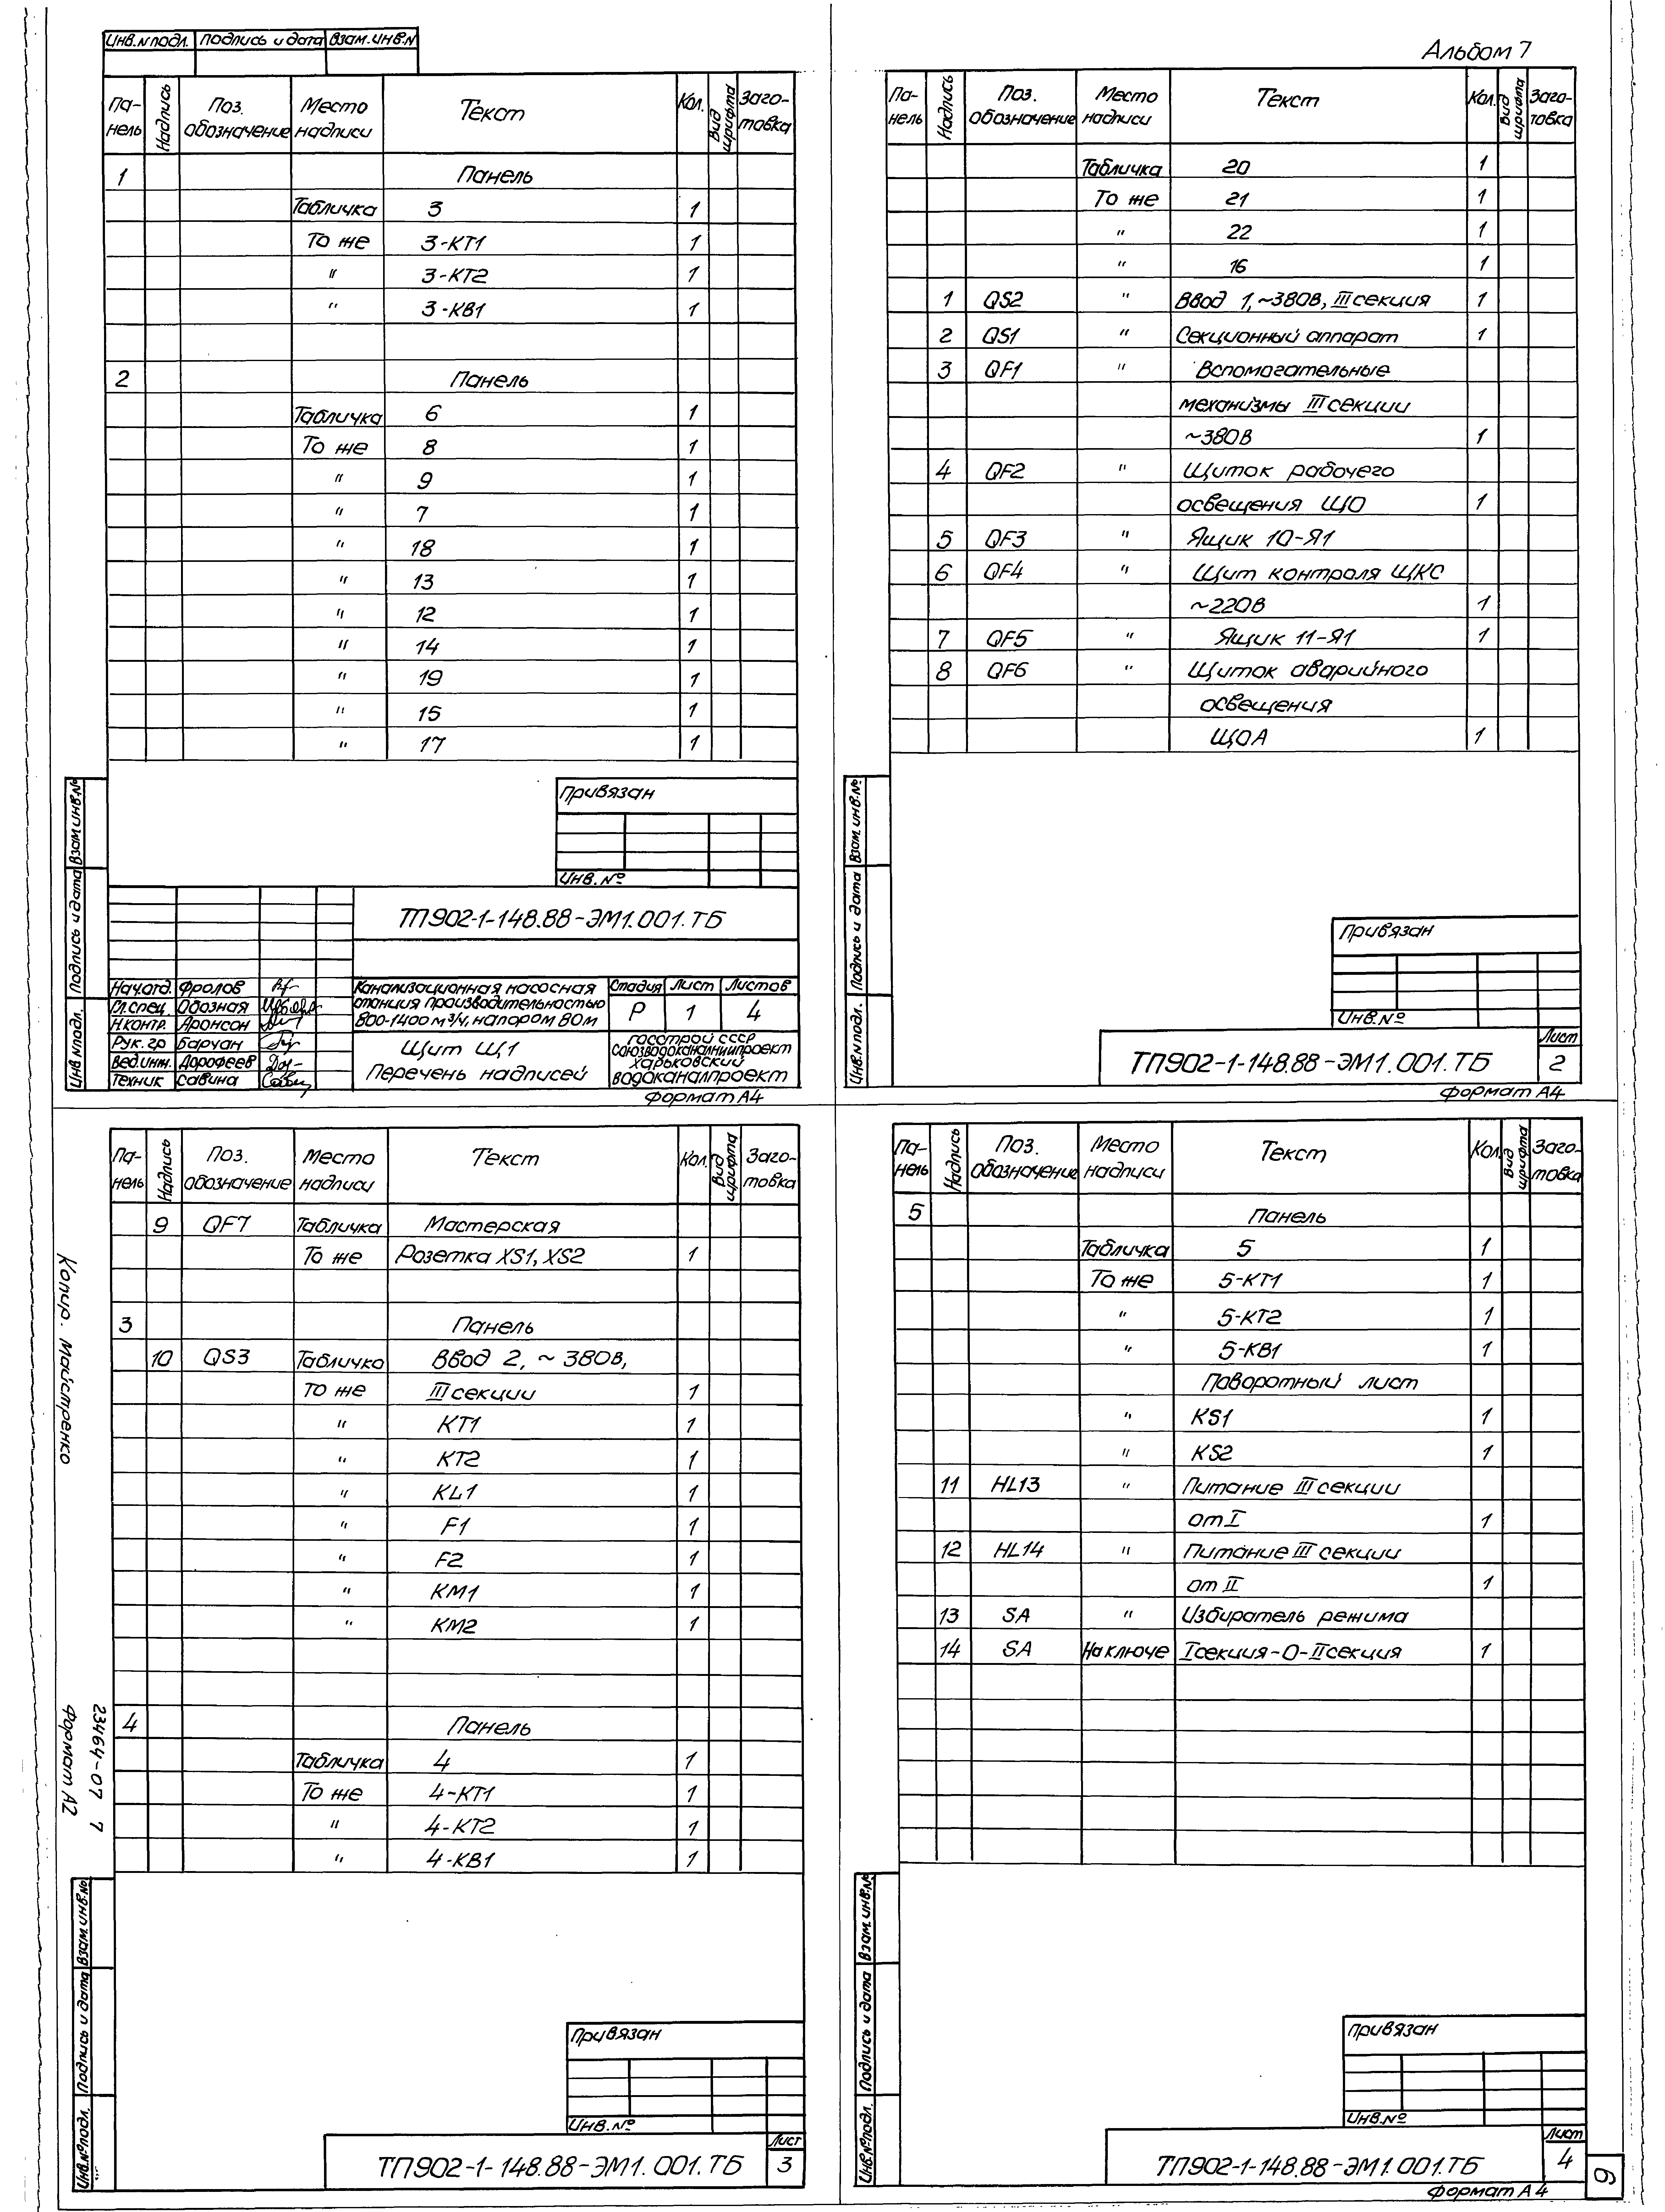 Альбом 7
Инв.N подл. Подпись и дата Взам.инв.N
Па-нель Надпись Поз. обозначение Место надписи Текст Кол. Вид шрифта Заго-товка
1 Панель
Табличка 3 1
То же 3-КТ1 1
" 3-КТ2 1
" 3-КВ1 1
2 Панель
Табличка 6 1
То же 8 1
" 9 1
" 7 1
" 18 1
" 13 1
" 12 1
" 14 1
" 19 1
" 15 1
" 17 1
Привязан
Инв.№
ТП902-1-148.88-ЭМ1.001.ТБ
Нач.отд. Фролов
Гл.спец. Обозная
Н.контр. Аронсон
Рук.гр Барчан
Вед.инж. Дорофеев
Техник Савина
Канализационная насосная
станция производительностью
800-1400 м³/ч, напором 80м
Стадия Лист Листов
Р 1 4
Щит Щ1
Перечень надписей
Госстрой СССР
Союзводоканалниипроект
Харьковский
Водоканалпроект
Формат А4
Инв.N подл. Подпись и дата Взам.инв.№
Па-нель Надпись Поз. обозначение Место надписи Текст Кол. Вид шрифта Заго-товка
Табличка 20 1
То же 21 1
" 22 1
" 16 1
1 QS2 " Ввод 1,~380В, III секция 1
2 QS1 " Секционный аппарат 1
3 QF1 " Вспомогательные
механизмы III секции
~380В 1
4 QF2 " Щиток рабочего
освещения ЩО 1
5 QF3 " Ящик 10-Я1
6 QF4 " Щит контроля ЩКС
~220В 1
7 QF5 " Ящик 11-Я1 1
8 QF6 " Щиток аварийного
освещения
ЩОА 1
Привязан
Инв.№
ТП902-1-148.88-ЭМ1.001.ТБ Лист 2
Формат А4
Инв.N подл. Подпись и дата Взам.инв.№
Па-нель Надпись Поз. обозначение Место надписи Текст Кол. Вид шрифта Заго-товка
9 QF7 Табличка Мастерская
То же Розетка XS1, XS2 1
3 Панель
10 QS3 Табличка Ввод 2, ~ 380В,
То же III секции 1
" КТ1 1
" КТ2 1
" KL1 1
" F1 1
" F2 1
" КМ1 1
" КМ2 1
4 Панель
Табличка 4 1
То же 4-КТ1 1
" 4-КТ2 1
" 4-КВ1 1
Привязан
Инв.№
ТП902-1-148.88-ЭМ1.001.ТБ Лист 3
Инв.№подл. Подпись и дата Взам.инв.№
Копир. Майстренко
23464-07 7
Формат А2
Па-нель Надпись Поз. обозначение Место надписи Текст Кол. Вид шрифта Заго-товка
5 Панель
Табличка 5 1
То же 5-КТ1 1
" 5-КТ2 1
" 5-КВ1 1
Поворотный лист
" KS1 1
" KS2 1
11 HL13 " Питание III секции
от I 1
12 HL14 " Питание III секции
от II 1
13 SA " Избиратель режима
14 SA На ключе I секция-0-II секция 1
Привязан
Инв.№
ТП902-1-148.88-ЭМ1.001.ТБ Лист 4
Формат А4
Инв.№подл. Подпись и дата Взам.инв.№
6